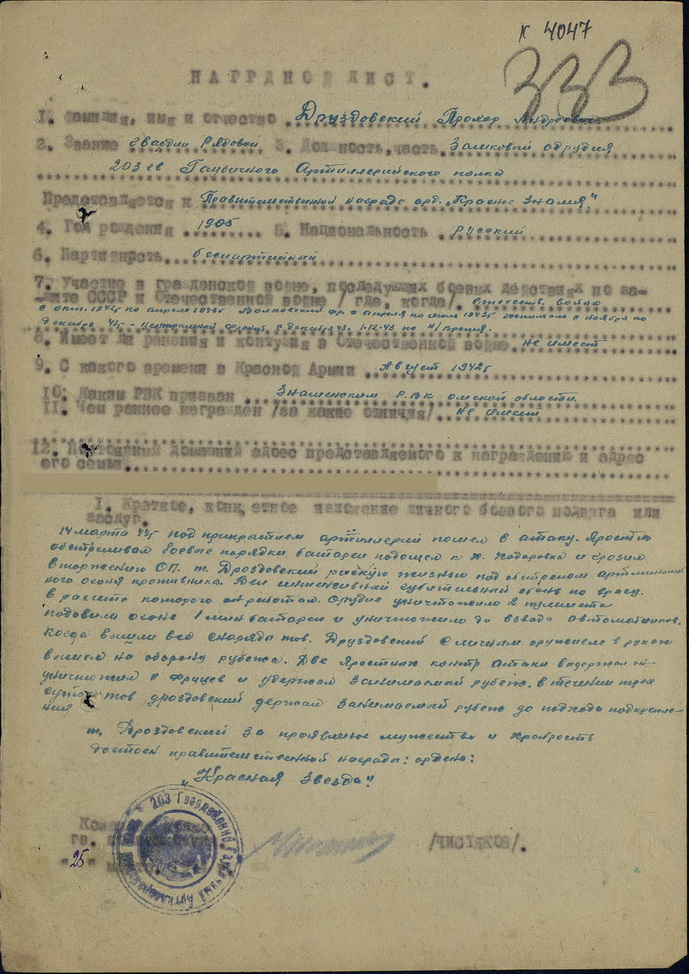 № 4047
333
НАГРАДНОЙ ЛИСТ.
1. Фамилия, имя и отчество Друздовский Прохор Андреевич
2. Звание гвардии рядовой 3. Должность, часть Замковой орудия
203 гв Гаубичного Артиллерийского полка
Представляется к Правительственной награде орд. "Красное Знамя"
4. Год рождения 1905 5. Национальность русский
6. Партийность беспартийный
7. Участие в гражданской войне, последующих боевых действиях по за-
щите СССР и Отечественной войне /где, когда/. Отечеств. война
8. Имеет ли ранения и контузия в Отечественной войне Не имеет
9. С какого времени в Красной Армии Август 1942г
10. Каким РВК призван Знаменским РВК омской области.
11. Чем раннее награжден /за какие отличия/ Не имеет
12. Постоянный домашний адрес представляемого к награждению и адрес
его семьи
I. Краткое, конкретное изложение личного боевого подвига или
заслуг.
14 марта под прикрытием артиллерии пошел в атаку. Яростно
обстреливал боевые порядки батареи подошел к Н. Ходоровка и грозил
вторжению ОП. т. Дроздовский рискуя жизнью под обстрелом артминомет
ного огня противника. Вел интенсивный губительный огонь по врагу.
в расчете которого он работал. Орудие уничтожило 2 пулимета
подовило огонь 1 мин батареи и уничтожило до взвода автоматчиков.
когда вышли все снаряды тов. Друздовский с личным оружием в руках
вышел на оборону рубежа. Две яростных контр атаки выдержал он
уничтожил 11 фрицев и удержал занимаемый рубеж. в течении трех
суток тов дроздовский держал занимаемый рубеж до подхода подкрепле-
ния
т. Дроздовский за проявленое мужество и храбрость
достоен правительственной награды: ордена:
"Красная Звезда"
203 Гвардейский Гаубичный Артиллерийский
"25"
/ЧИСТЯКОВ/.